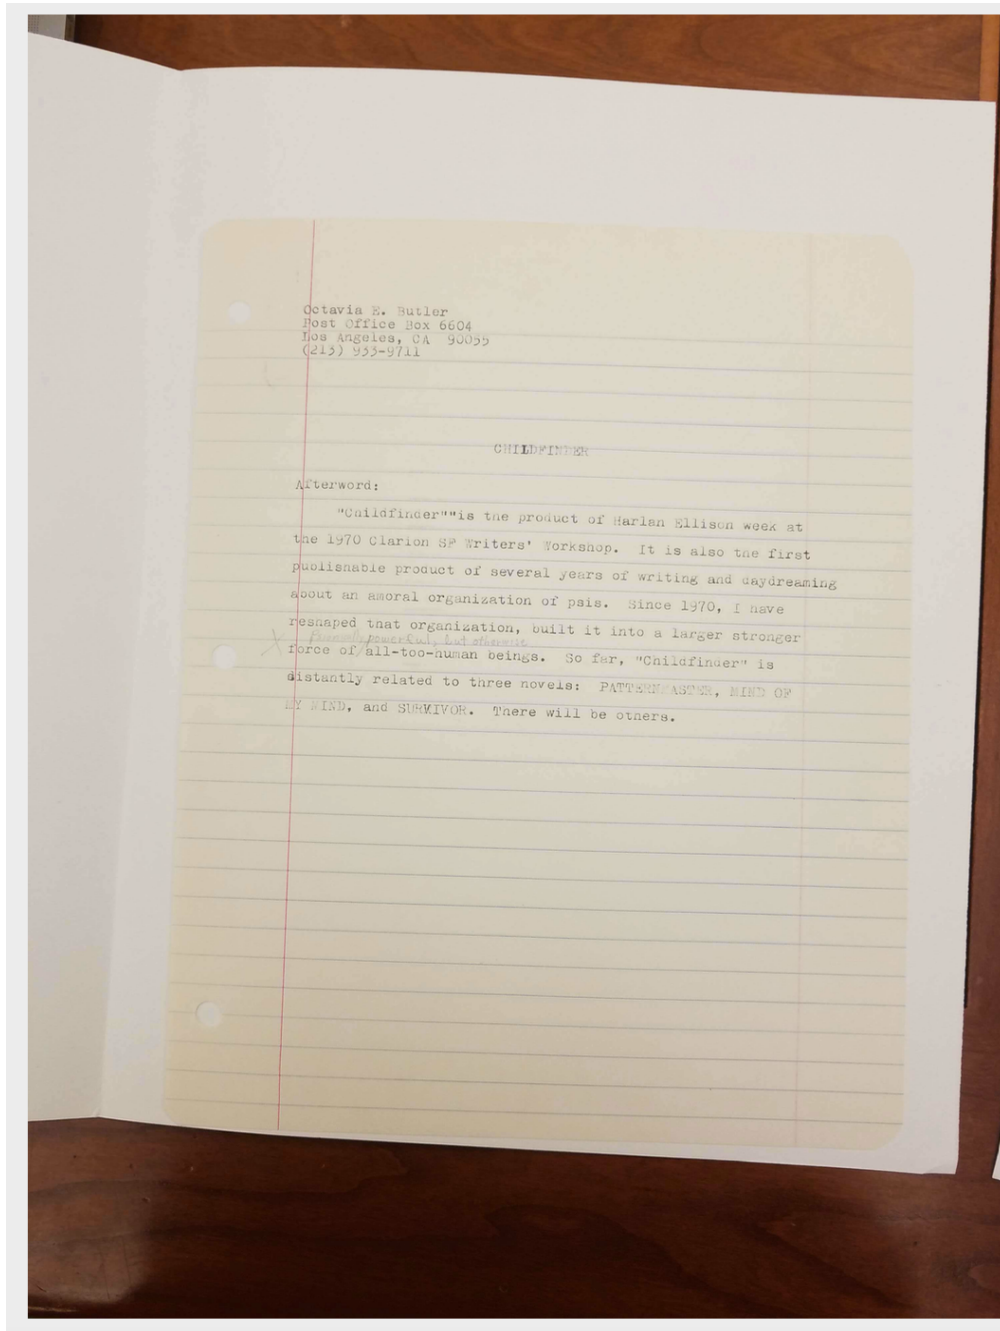 Octavia E. Butler
Post Office Box 6604
Los Angeles, CA 90055
(213) 933-9711
CHILDFINDER
Afterword:
"Childfinder""is the product of Harlan Ellison week at
the 1970 Clarion SF Writers' Workshop. It is also the first
publishable product of several years of writing and daydreaming
about an amoral organization of psis. Since 1970, I have
reshaped that organization, built it into a larger stronger
X powerful, but otherwise
force of/all-too-human beings. So far, "Childfinder" is
distantly related to three novels: PATTERNMASTER, MIND OF
MY MIND, and SURVIVOR. There will be others.